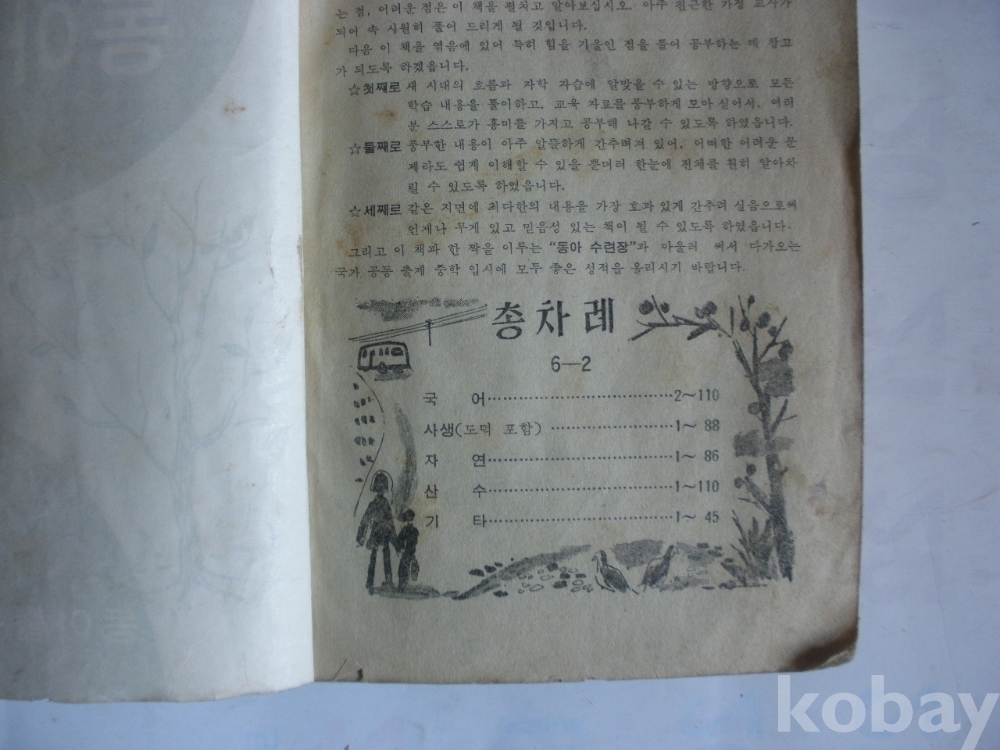 는 점, 어려운 점은 이 책을 펼치고 알아보십시오. 아주 친근한 가정 교사가
되어 속 시원히 풀어 드리게 될 것입니다.
다음 이 책을 엮음에 있어 특히 힘을 기울인 점을 들어 공부하는 데 참고
가 되도록 하겠읍니다.
☆첫째로 새 시대의 흐름과 자학 자습에 알맞을 수 있는 방향으로 모든
학습 내용을 풀이하고, 교육 자료를 풍부하게 모아 실어서, 여러
분 스스로가 흥미를 가지고 공부해 나갈 수 있도록 하였읍니다.
☆둘째로 풍부한 내용이 아주 알뜰하게 간추려져 있어, 어떠한 어려운 문
제라도 쉽게 이해할 수 있을 뿐더러 한눈에 전체를 훤히 알아차
릴 수 있도록 하였읍니다.
☆세째로 같은 지면에 최다한의 내용을 가장 효과 있게 간추려 실음으로써
언제나 무게 있고 믿음성 있는 책이 될 수 있도록 하였읍니다.
그리고 이 책과 한 짝을 이루는 “동아 수련장”과 아울러 써서 다가오는
국가 공동 출제 중학 입시에 모두 좋은 성적을 올리시기 바랍니다.
총차례
6—2
국 어……………………………2~110
사생(도덕 포함) …………………1~ 88
자 연……………………………1~ 86
산 수……………………………1~110
기 타……………………………1~ 45
kobay